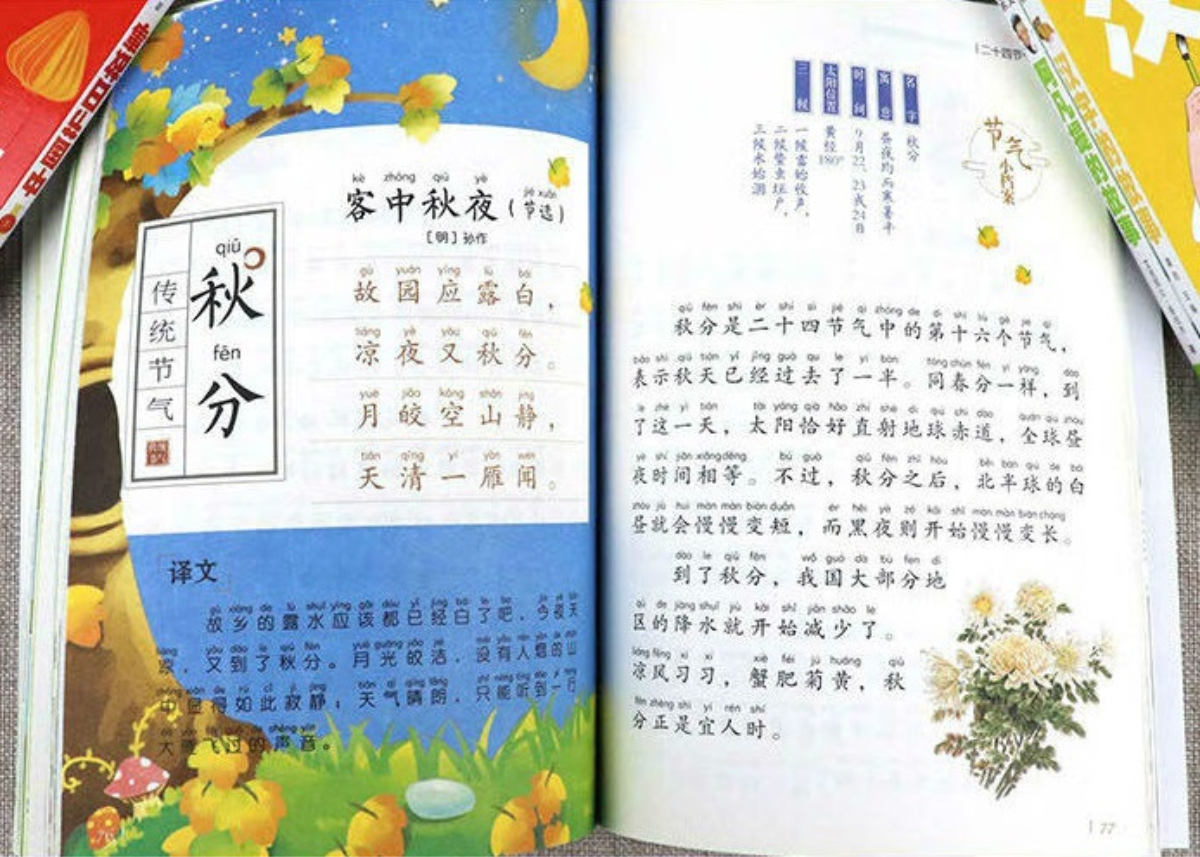 qiū
秋
fēn
分
传统节气
kè zhōng qiū yè jié xuǎn
客中秋夜(节选)
[明]孙作
gù yuán yīng lù bái
故园应露白，
liáng yè yòu qiū fēn
凉夜又秋分。
yuè jiǎo kōng shān jìng
月皎空山静，
tiān qīng yī yàn wén
天清一雁闻。
译文
gù xiāng de lù shuǐ yīng gāi dōu yǐ jīng bái le ba jīn yè tiān
故乡的露水应该都已经白了吧，今夜天
liáng yòu dào le qiū fēn yuè guāng jiǎo jié méi yǒu rén yān de shān
凉，又到了秋分。月光皎洁，没有人烟的山
zhōng xiǎn de rú cǐ jì jìng tiān qì qíng lǎng zhǐ néng tīng dào yī háng
中显得如此寂静；天气晴朗，只能听到一行
dà yàn fēi guò de shēng yīn
大雁飞过的声音。
二十四节
节气
小档案
名字 秋分
寓意 昼夜均而寒暑平
时间 9月22、23或24日
太阳位置 黄经180°
三候 一候雷始收声，
二候蛰虫坯户，
三候水始涸
qiū fēn shì èr shí sì jié qì zhōng de dì shí liù gè jié qì
秋分是二十四节气中的第十六个节气，
biǎo shì qiū tiān yǐ jīng guò qu le yí bàn tóng chūn fēn yí yàng dào
表示秋天已经过去了一半。同春分一样，到
le zhè yì tiān tài yáng qià hǎo zhí shè dì qiú chì dào quán qiú zhòu
了这一天，太阳恰好直射地球赤道，全球昼
yè shí jiān xiāng děng bú guò qiū fēn zhī hòu běi bàn qiú de bái
夜时间相等。不过，秋分之后，北半球的白
zhòu jiù huì màn màn biàn duǎn ér hēi yè zé kāi shǐ màn màn biàn cháng
昼就会慢慢变短，而黑夜则开始慢慢变长。
dào le qiū fēn wǒ guó dà bù fen dì
到了秋分，我国大部分地
qū de jiàng shuǐ jiù kāi shǐ jiǎn shǎo le
区的降水就开始减少了。
liáng fēng xí xí xiè féi jú huáng qiū
凉风习习，蟹肥菊黄，秋
fēn zhèng shì yí rén shí
分正是宜人时。
77